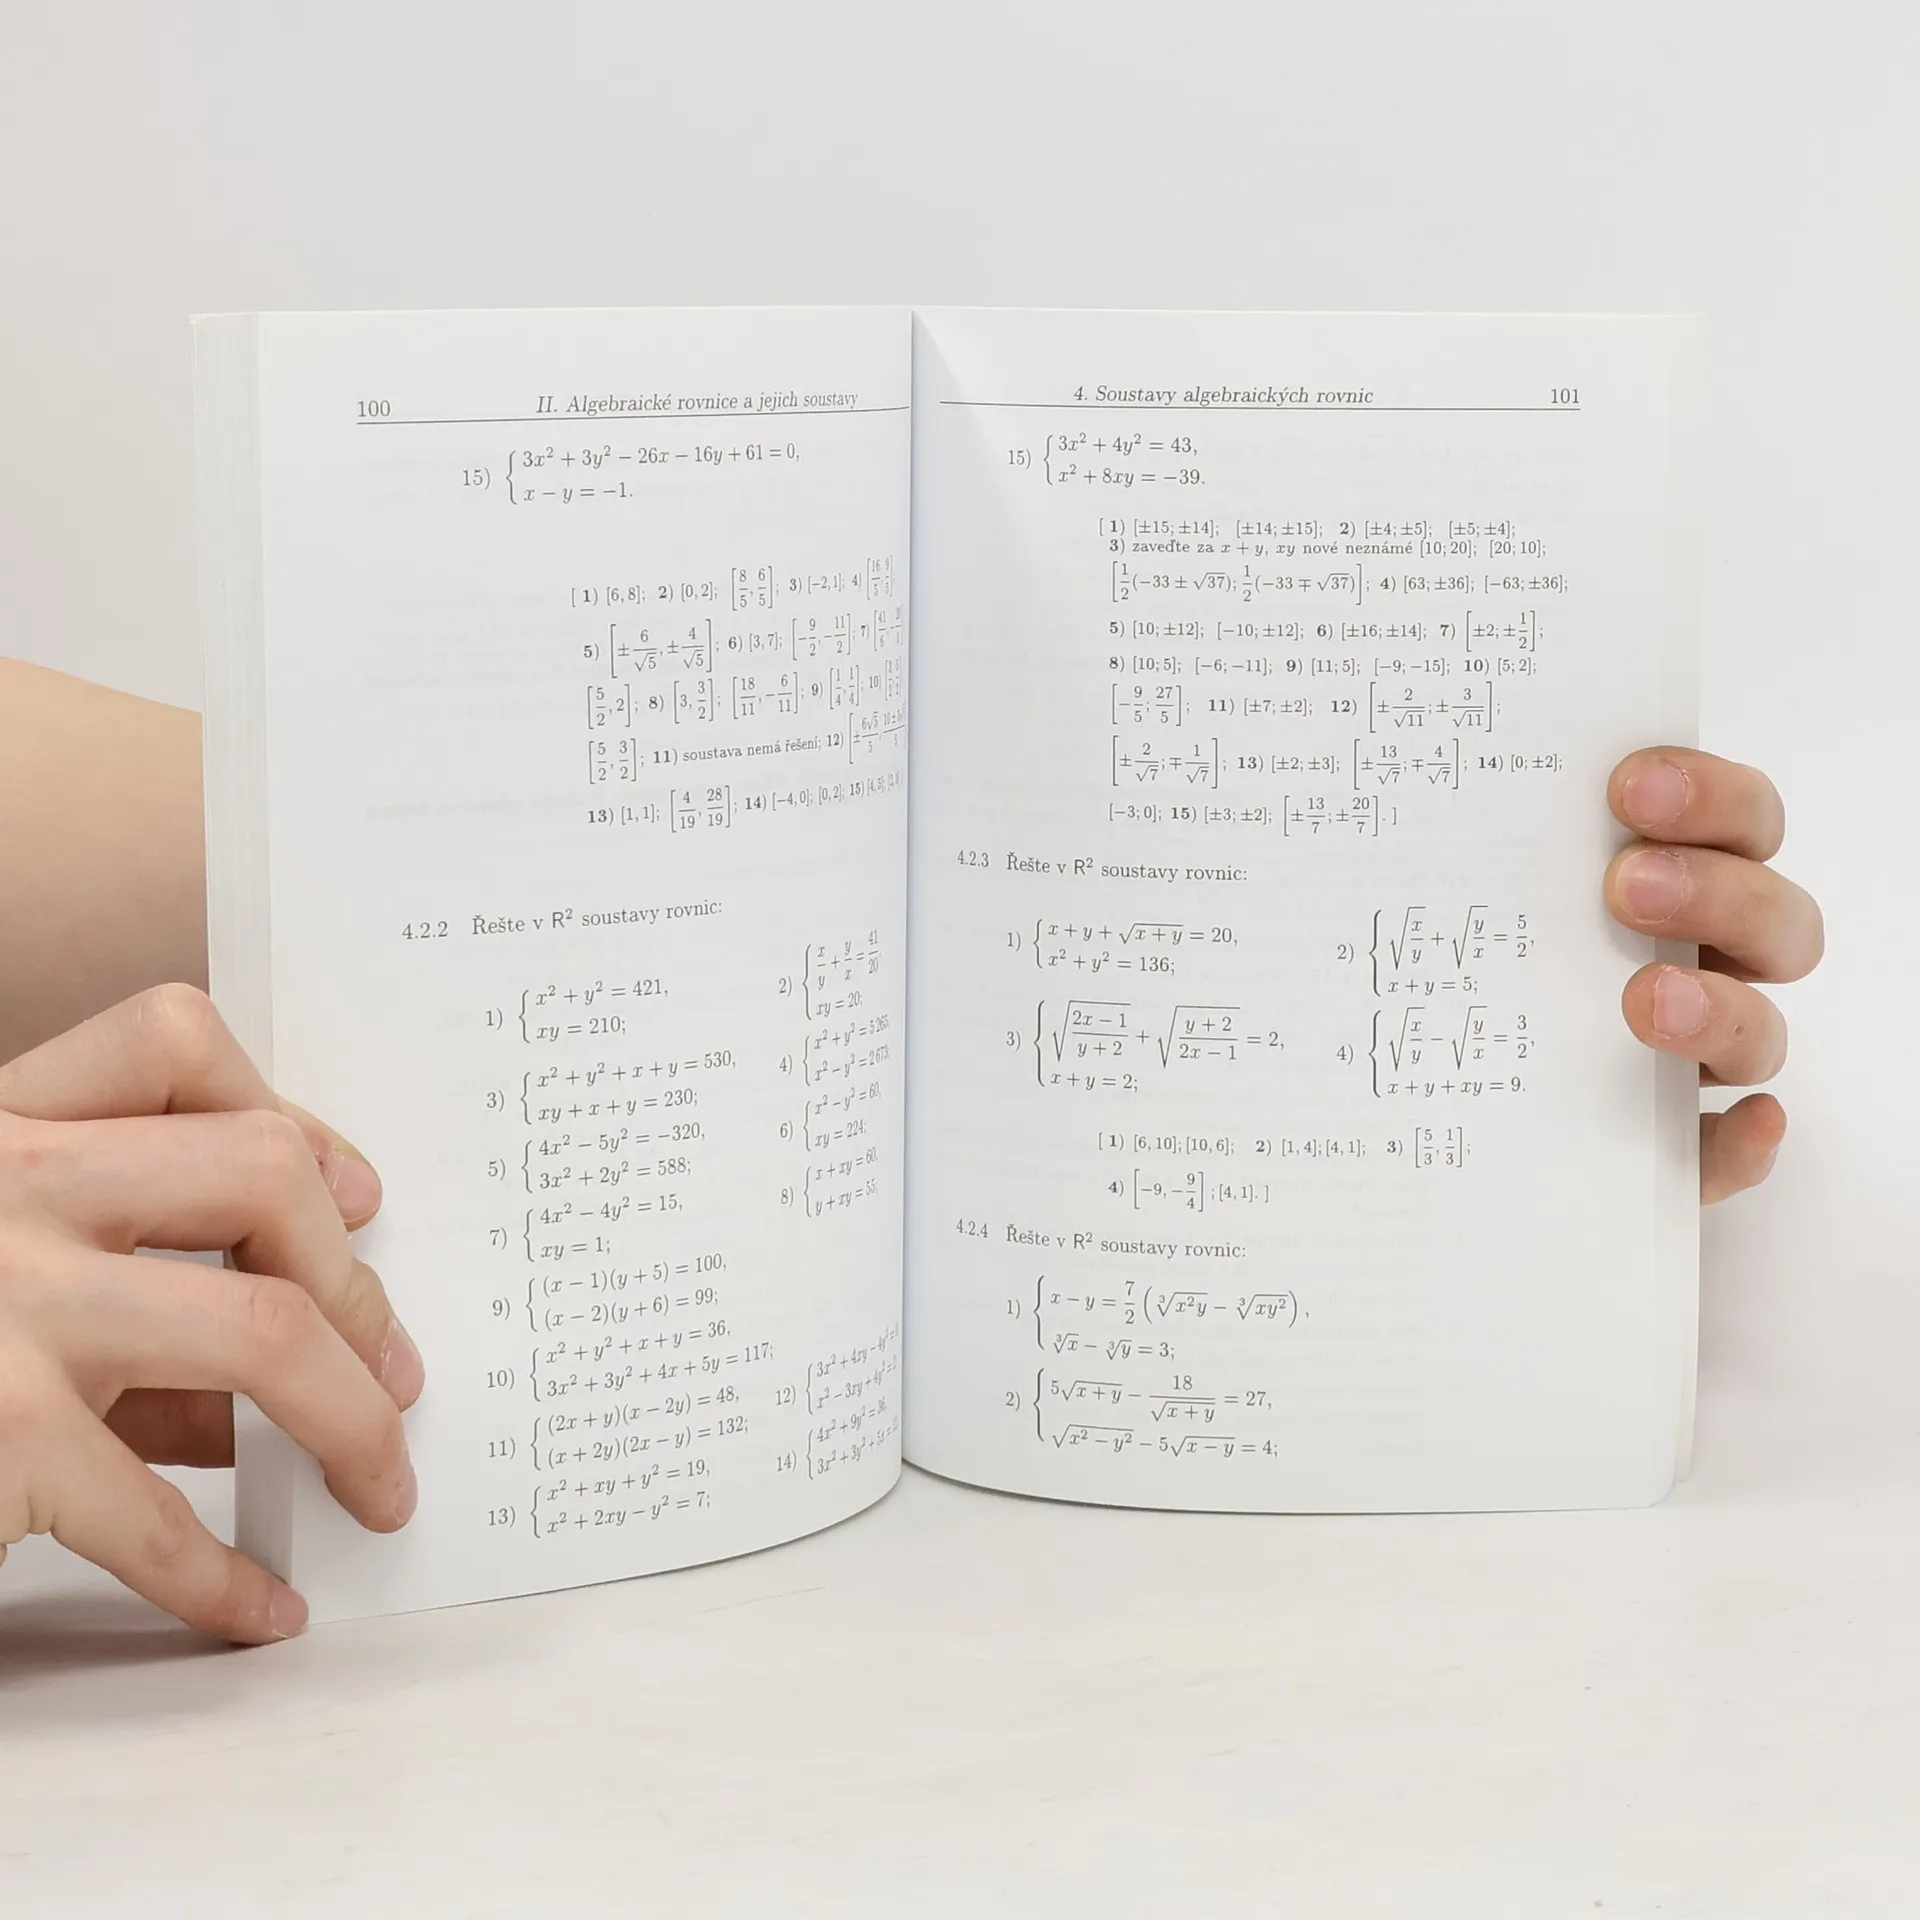 100 II. Algebraické rovnice a jejich soustavy
15) { 3x² + 3y² − 26x − 16y + 61 = 0,
x − y = −1.
[ 1) [6, 8]; 2) [0, 2]; [8/5, 6/5]; 3) [−2, 1]; 4) [16/5, 9/5]
5) [±6/√5, ±4/√5]; 6) [3, 7]; [−9/2, −11/2]; 7) [41/6, −
[5/2, 2]; 8) [3, 3/2]; [18/11, −6/11]; 9) [1/4, 1/4]; 10)
[5/2, 3/2]; 11) soustava nemá řešení; 12) [±6√5/5,
13) [1, 1]; [4/19, 28/19]; 14) [−4, 0]; [0, 2]; 15) [4, 5];
4.2.2 Řešte v R² soustavy rovnic:
1) { x² + y² = 421,
xy = 210;
2) { x/y + y/x = 41/20,
xy = 20;
3) { x² + y² + x + y = 530,
xy + x + y = 230;
4) { x² + y² = 5 265,
x² − y² = 2 673;
5) { 4x² − 5y² = −320,
3x² + 2y² = 588;
6) { x² − y² = 60,
xy = 224;
7) { 4x² − 4y² = 15,
xy = 1;
8) { x + xy = 60,
y + xy = 55;
9) { (x − 1)(y + 5) = 100,
(x − 2)(y + 6) = 99;
10) { x² + y² + x + y = 36,
3x² + 3y² + 4x + 5y = 117;
11) { (2x + y)(x − 2y) = 48,
(x + 2y)(2x − y) = 132;
12) { 3x² + 4xy − 4y² =
x² − 3xy + 4y² =
13) { x² + xy + y² = 19,
x² + 2xy − y² = 7;
14) { 4x² + 9y² = 36,
3x² + 3y² + 5x =
4. Soustavy algebraických rovnic 101
15) { 3x² + 4y² = 43,
x² + 8xy = −39.
[ 1) [±15; ±14]; [±14; ±15]; 2) [±4; ±5]; [±5; ±4];
3) zaveďte za x + y, xy nové neznámé [10; 20]; [20; 10];
[1/2(−33 ± √37); 1/2(−33 ∓ √37)]; 4) [63; ±36]; [−63; ±36];
5) [10; ±12]; [−10; ±12]; 6) [±16; ±14]; 7) [±2; ±1/2];
8) [10; 5]; [−6; −11]; 9) [11; 5]; [−9; −15]; 10) [5; 2];
[−9/5; 27/5]; 11) [±7; ±2]; 12) [±2/√11; ±3/√11];
[±2/√7; ∓1/√7]; 13) [±2; ±3]; [±13/√7; ∓4/√7]; 14) [0; ±2];
[−3; 0]; 15) [±3; ±2]; [±13/7; ±20/7]. ]
4.2.3 Řešte v R² soustavy rovnic:
1) { x + y + √(x + y) = 20,
x² + y² = 136;
2) { √(x/y) + √(y/x) = 5/2,
x + y = 5;
3) { √((2x − 1)/(y + 2)) + √((y + 2)/(2x − 1)) = 2,
x + y = 2;
4) { √(x/y) − √(y/x) = 3/2,
x + y + xy = 9.
[ 1) [6, 10]; [10, 6]; 2) [1, 4]; [4, 1]; 3) [5/3, 1/3];
4) [−9, −9/4]; [4, 1]. ]
4.2.4 Řešte v R² soustavy rovnic:
1) { x − y = 7/2 (∛(x²y) − ∛(xy²)),
∛x − ∛y = 3;
2) { 5√(x + y) − 18/√(x + y) = 27,
√(x² − y²) − 5√(x − y) = 4;